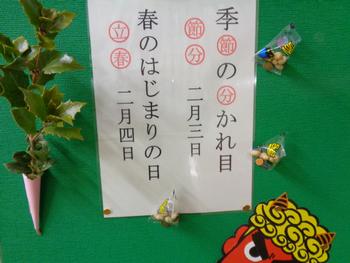 季節の分かれ目
節分
二月三日
春のはじまりの日
立春
二月四日